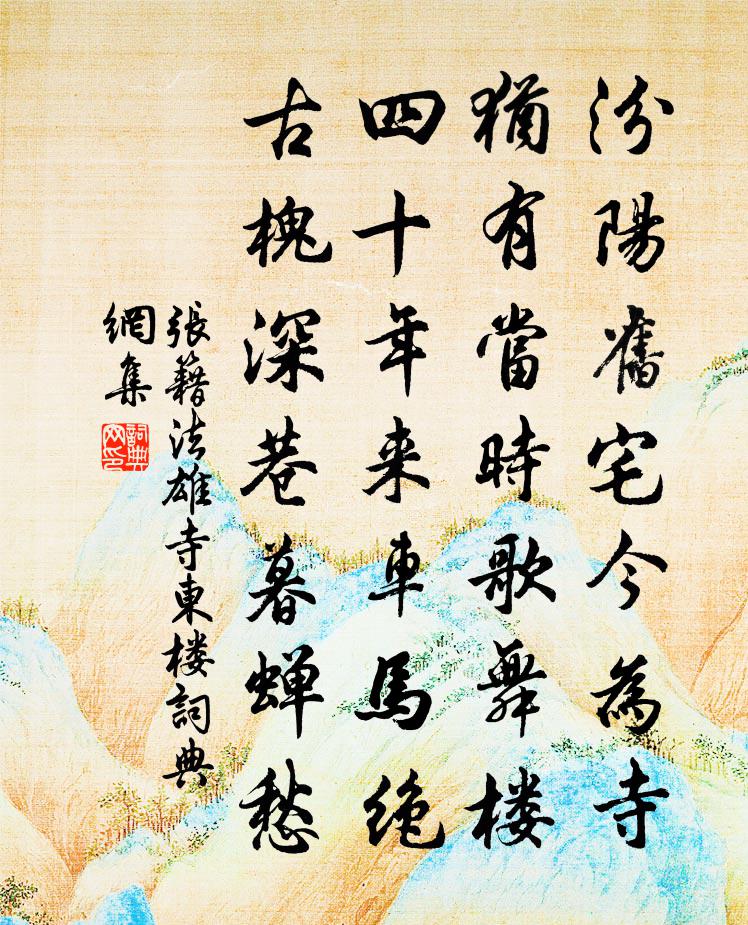 汾陽舊宅今為寺
猶有當時歌舞楼
四十年来車馬絶
古槐深巷暮蝉愁
張籍法雄寺東楼詞典
網集
詞典网印